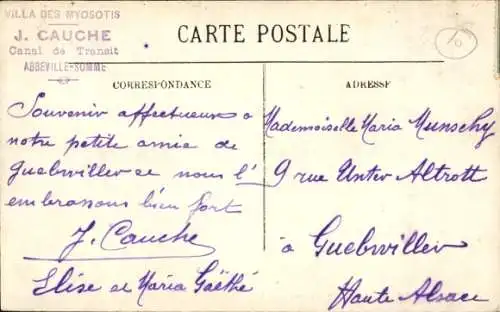 VILLA DES MYOSOTIS
J. CAUCHE
Canal de Transit
ABBEVILLE-SOMME
CARTE POSTALE
10
CORRESPONDANCE
ADRESSE
Souvenir affectueux a
notre petite amie de
Guebwiller et nous l'
embrassons bien fort
J. Cauche
Elise et Maria Gaëthé
Mademoiselle Maria Munschy
9 rue Unter Altrott
à Guebwiller
Haute Alsace